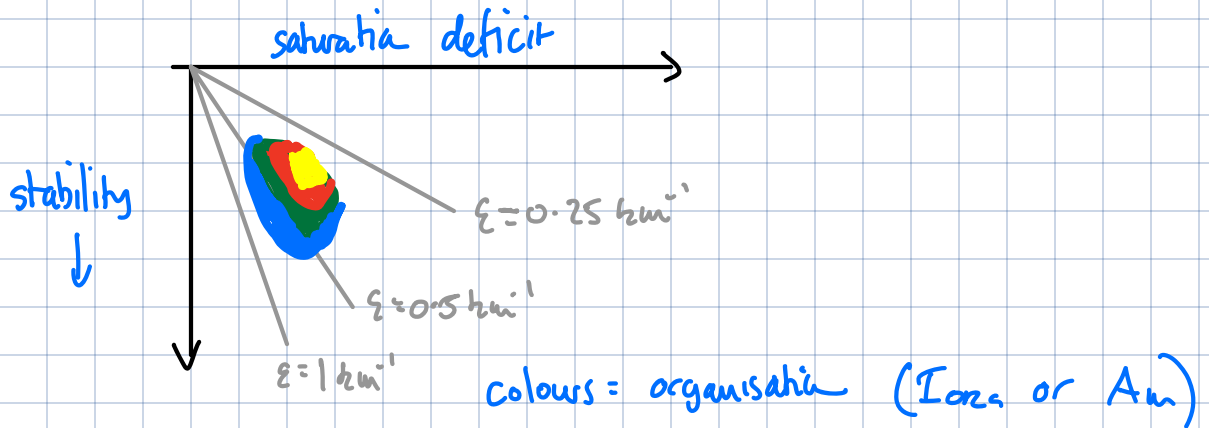 saturatia deficit
stability
ε=0.25 km⁻¹
ε=0.5 km⁻¹
ε=1 km⁻¹
colours = organisatia (Iorg or Am)